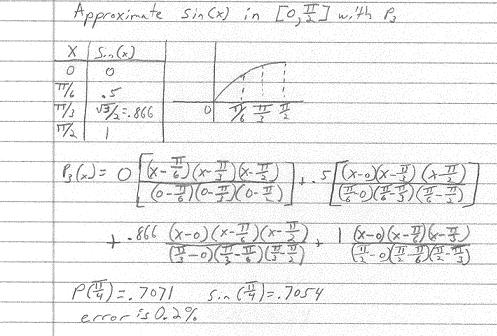 Approximate sin(x) in [0, π/2] with P₃
x | sin(x)
0 | 0
π/6 | .5
π/3 | √3/2 = .866
π/2 | 1
0 π/6 π/3 π/2
P₃(x) = 0 [(x-π/6)(x-π/3)(x-π/2) / (0-π/6)(0-π/3)(0-π/2)] + .5 [(x-0)(x-π/3)(x-π/2) / (π/6-0)(π/6-π/3)(π/6-π/2)]
+ .866 (x-0)(x-π/6)(x-π/2) / (π/3-0)(π/3-π/6)(π/3-π/2) + 1 (x-0)(x-π/6)(x-π/3) / (π/2-0)(π/2-π/6)(π/2-π/3)
P(π/4) = .7071 sin(π/4) = .7054
error is 0.2%